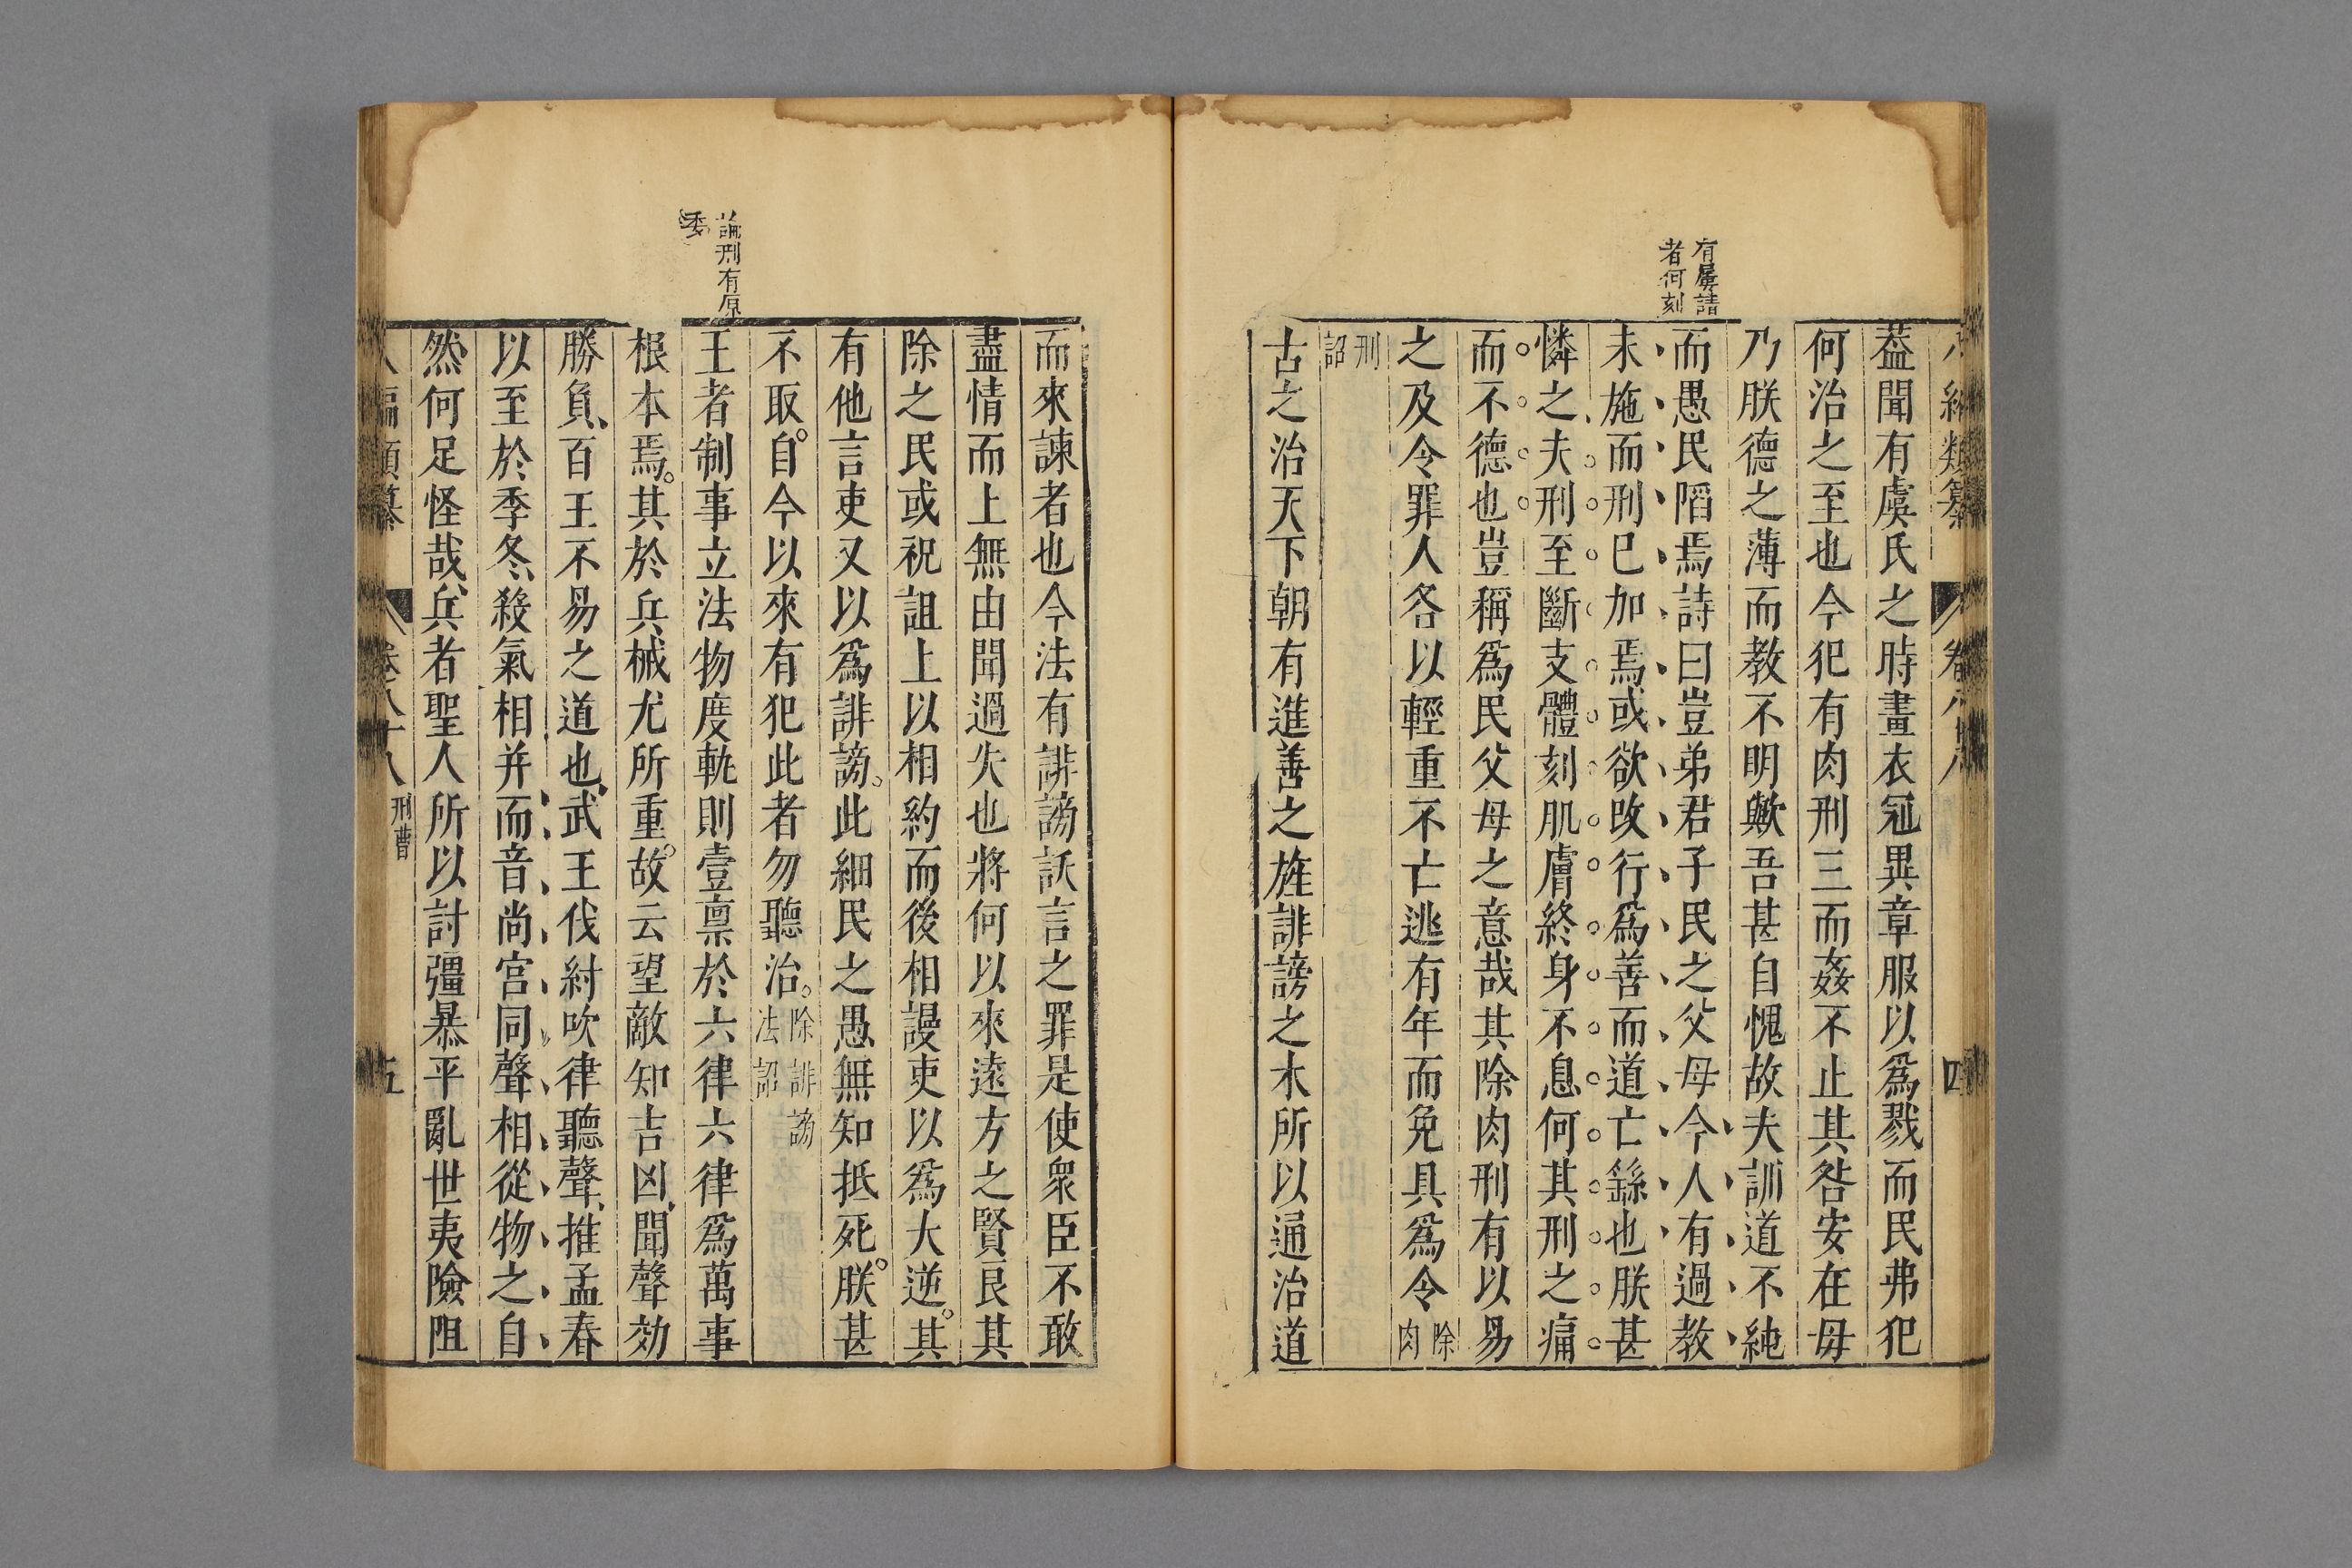 有屢請
者何刻
編類纂 卷八十八 四
葢聞有虞氏之時畫衣冠異章服以爲戮而民弗犯
何治之至也今犯有肉刑三而姦不止其咎安在毋
乃朕德之薄而教不明歟吾甚自愧故夫訓道不純
而愚民陷焉詩曰豈弟君子民之父母今人有過教
未施而刑已加焉或欲改行爲善而道亡繇也朕甚
憐之夫刑至斷支體刻肌膚終身不息何其刑之痛
而不德也豈稱爲民父母之意哉其除肉刑有以易
之及令罪人各以輕重不亡逃有年而免具爲令 除肉
刑詔
古之治天下朝有進善之旌誹謗之木所以通治道
論刑有原
委
而來諫者也今法有誹謗訞言之罪是使衆臣不敢
盡情而上無由聞過失也將何以來遠方之賢良其
除之民或祝詛上以相約而後相謾吏以爲大逆其
有他言吏又以爲誹謗此細民之愚無知抵死朕甚
不取自今以來有犯此者勿聽治 除誹謗法詔
王者制事立法物度軌則壹禀於六律六律爲萬事
根本焉其於兵械尤所重故云望敵知吉凶聞聲効
勝負百王不易之道也武王伐紂吹律聽聲推孟春
以至於季冬殺氣相并而音尚宮同聲相從物之自
然何足怪哉兵者聖人所以討彊暴平亂世夷險阻
八編類纂 卷八十八 刑曹 五